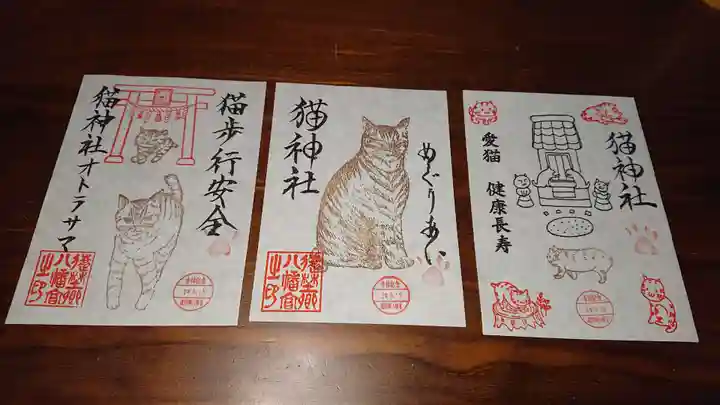 猫歩行安全
猫神社オトラサマ
八幡宮
之印
めぐりあい
猫神社
八幡宮
之印
猫神社
愛猫 健康長寿